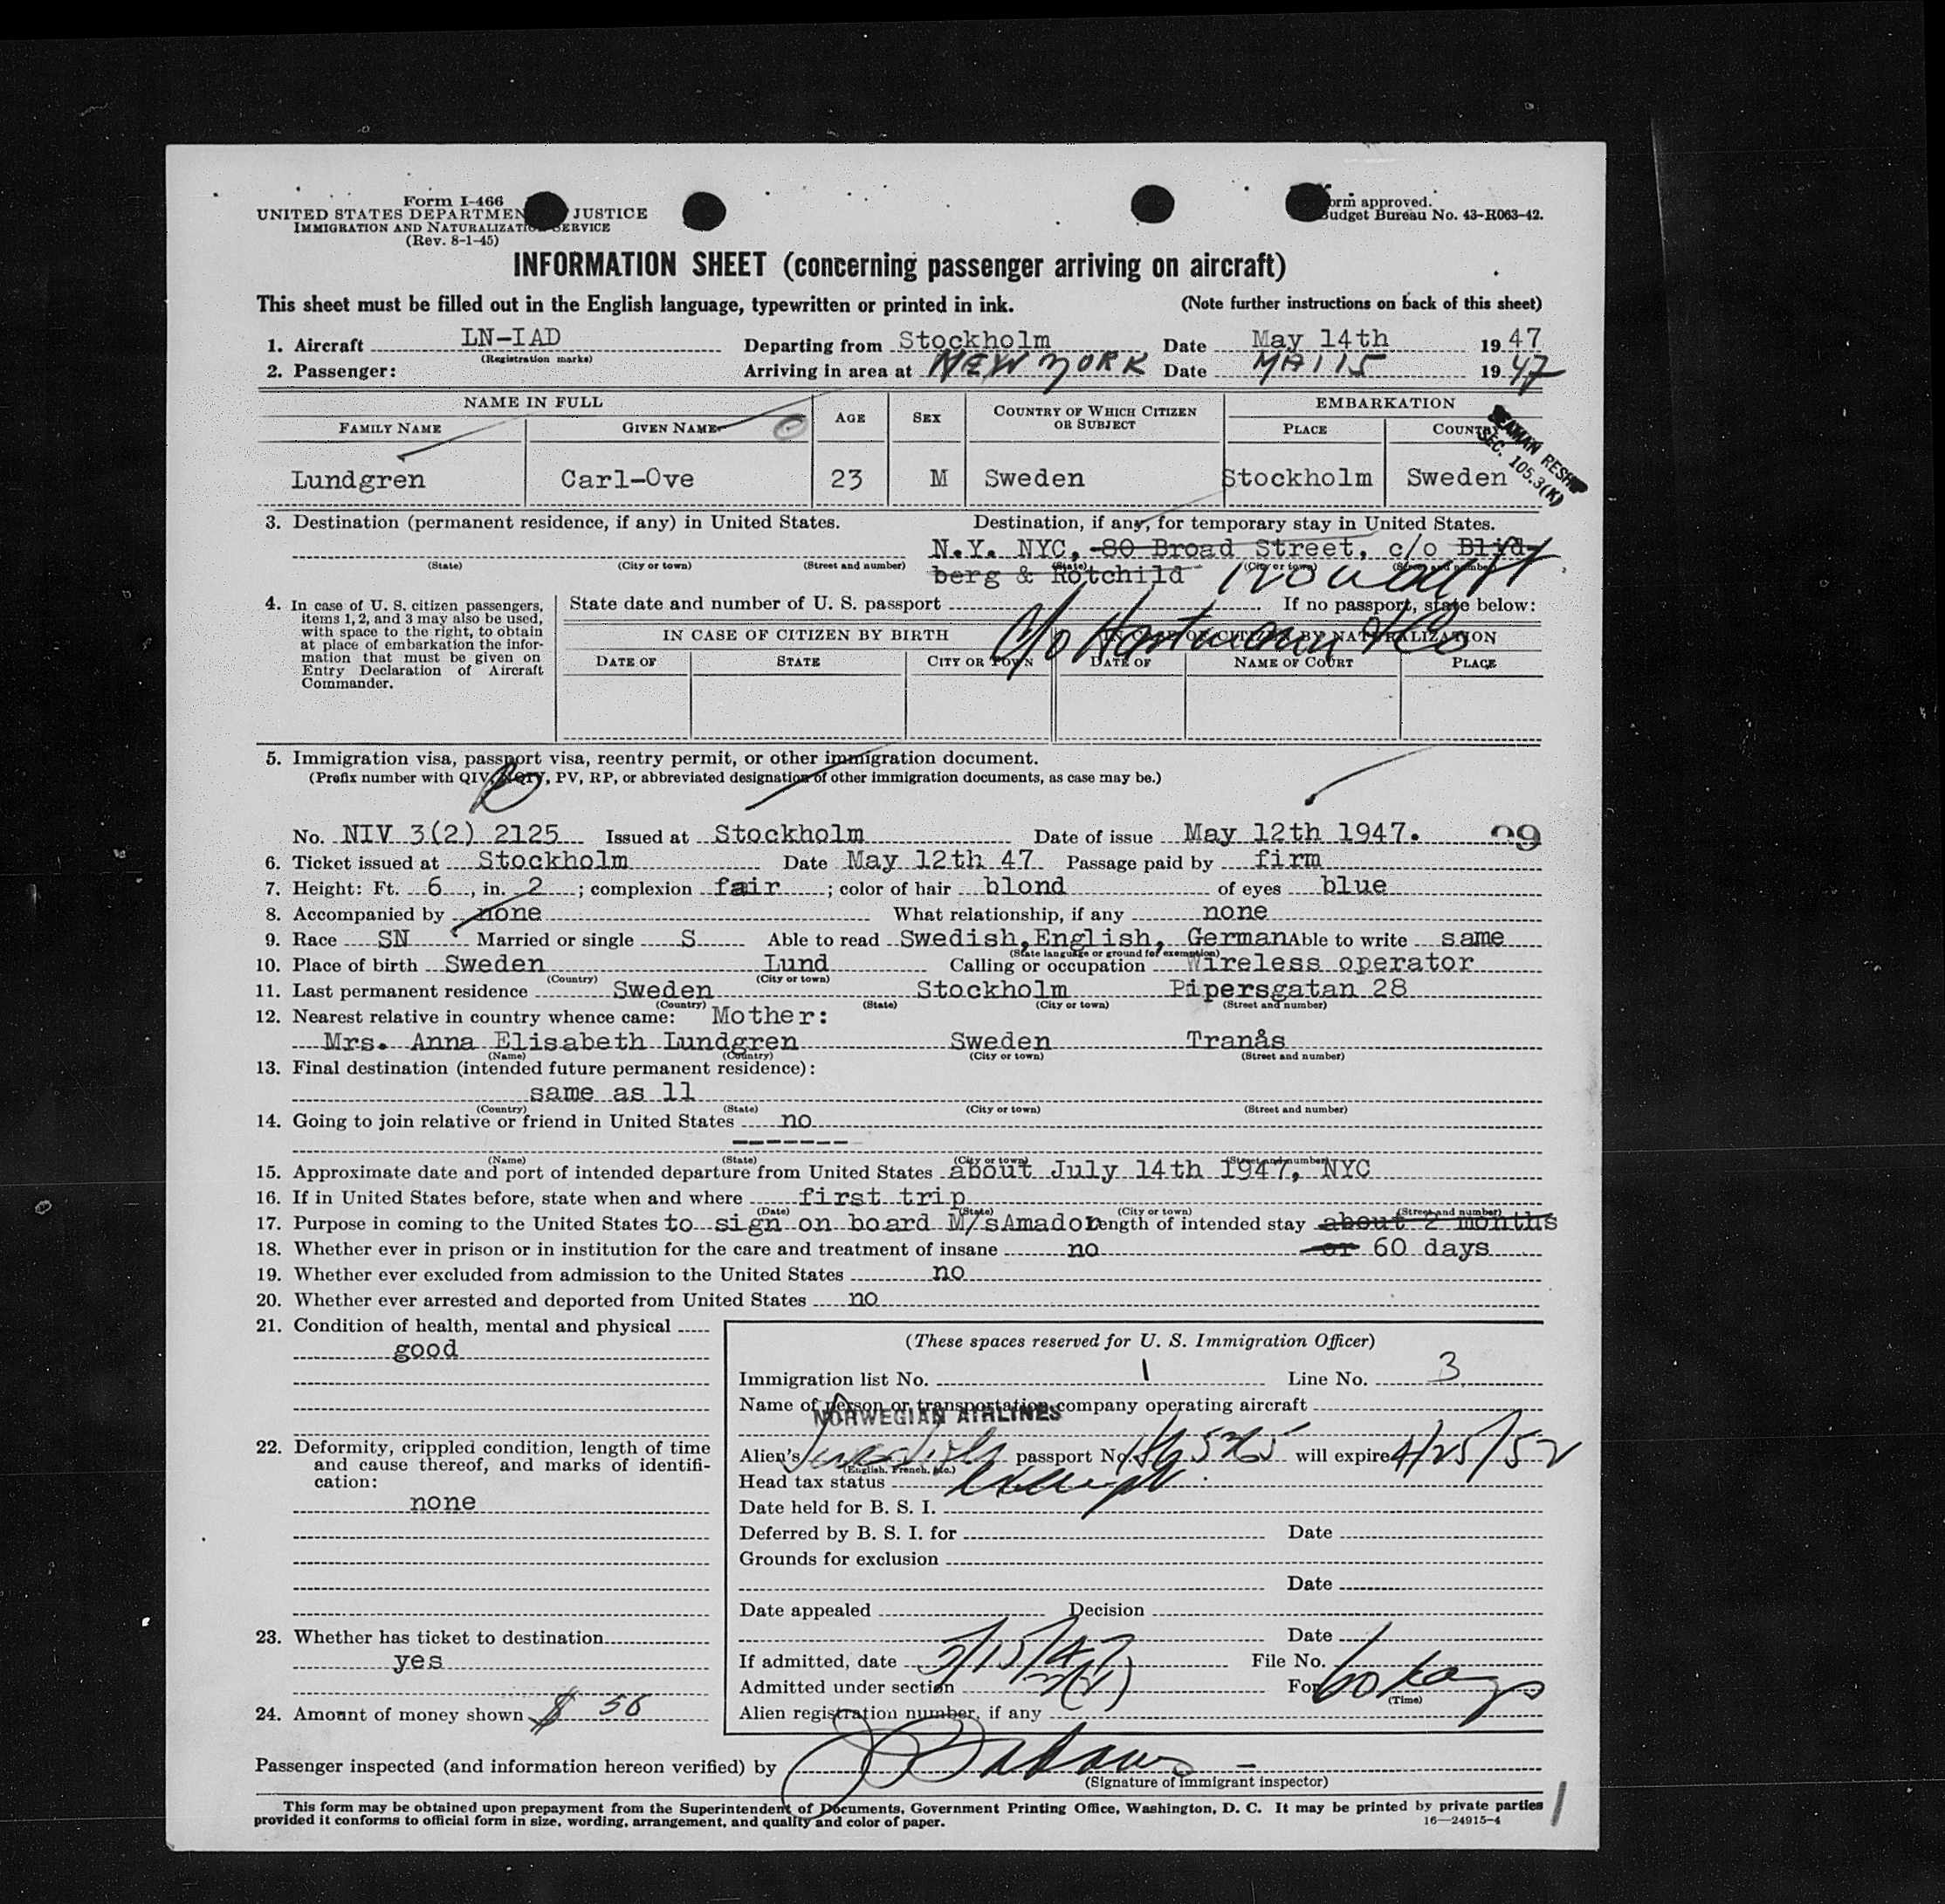 Form I-466
UNITED STATES DEPARTMEN JUSTICE
IMMIGRATION AND NATURALIZATIO SERVICE
(Rev. 8-1-45)
orm approved.
Budget Bureau No. 43-R063-42.
INFORMATION SHEET (concerning passenger arriving on aircraft)
This sheet must be filled out in the English language, typewritten or printed in ink. (Note further instructions on back of this sheet)
1. Aircraft LN-IAD Departing from Stockholm Date May 14th 1947
(Registration marks)
2. Passenger: Arriving in area at NEW YORK Date MAI 15 1947
NAME IN FULL AGE SEX COUNTRY OF WHICH CITIZEN OR SUBJECT EMBARKATION
FAMILY NAME GIVEN NAME PLACE COUNTRY
SEAMAN RESHIP
SEC. 105.3(K)
Lundgren Carl-Ove 23 M Sweden Stockholm Sweden
3. Destination (permanent residence, if any) in United States. Destination, if any, for temporary stay in United States.
N.Y. NYC, 80 Broad Street, c/o Blid-
(State) (City or town) (Street and number) (State) (City or town) (Street and number)
berg & Rotchild
c/o Hartmann & Co
4. In case of U. S. citizen passengers, items 1, 2, and 3 may also be used, with space to the right, to obtain at place of embarkation the information that must be given on Entry Declaration of Aircraft Commander.
State date and number of U. S. passport If no passport, state below:
IN CASE OF CITIZEN BY BIRTH IN CASE OF CITIZEN BY NATURALIZATION
DATE OF STATE CITY OR TOWN DATE OF NAME OF COURT PLACE
5. Immigration visa, passport visa, reentry permit, or other immigration document.
(Prefix number with QIV, PV, RP, or abbreviated designation of other immigration documents, as case may be.)
No. NIV 3(2) 2125 Issued at Stockholm Date of issue May 12th 1947. 99
6. Ticket issued at Stockholm Date May 12th 47 Passage paid by firm
7. Height: Ft. 6, in. 2; complexion fair; color of hair blond of eyes blue
8. Accompanied by none What relationship, if any none
9. Race SN Married or single S Able to read Swedish, English, German Able to write same
(State language or ground for exemption)
10. Place of birth Sweden Lund Calling or occupation Wireless operator
(Country) (City or town)
11. Last permanent residence Sweden Stockholm Pipersgatan 28
(Country) (State) (City or town) (Street and number)
12. Nearest relative in country whence came: Mother:
Mrs. Anna Elisabeth Lundgren Sweden Tranås
(Name) (Country) (City or town) (Street and number)
13. Final destination (intended future permanent residence):
same as 11
(Country) (State) (City or town) (Street and number)
14. Going to join relative or friend in United States no
-------
(Name) (State) (City or town) (Street and number)
15. Approximate date and port of intended departure from United States about July 14th 1947, NYC
16. If in United States before, state when and where first trip
(Date) (State) (City or town) (Street and number)
17. Purpose in coming to the United States to sign on board M/s Amador Length of intended stay about 2 months
18. Whether ever in prison or in institution for the care and treatment of insane no or 60 days
19. Whether ever excluded from admission to the United States no
20. Whether ever arrested and deported from United States no
21. Condition of health, mental and physical
good
22. Deformity, crippled condition, length of time and cause thereof, and marks of identification:
none
23. Whether has ticket to destination
yes
24. Amount of money shown $ 56
(These spaces reserved for U. S. Immigration Officer)
Immigration list No. 1 Line No. 3
Name of person or transportation company operating aircraft
NORWEGIAN AIRLINES
Alien's Swedish passport No. will expire 4/25/52
(English, French, etc.)
Head tax status exempt
Date held for B. S. I.
Deferred by B. S. I. for Date
Grounds for exclusion
Date
Date appealed Decision
Date
If admitted, date 5/15/47 File No.
Admitted under section 3(2) For 60 days
(Time)
Alien registration number, if any
Passenger inspected (and information hereon verified) by
(Signature of immigrant inspector)
This form may be obtained upon prepayment from the Superintendent of Documents, Government Printing Office, Washington, D. C. It may be printed by private parties
provided it conforms to official form in size, wording, arrangement, and quality and color of paper. 16—24915-4